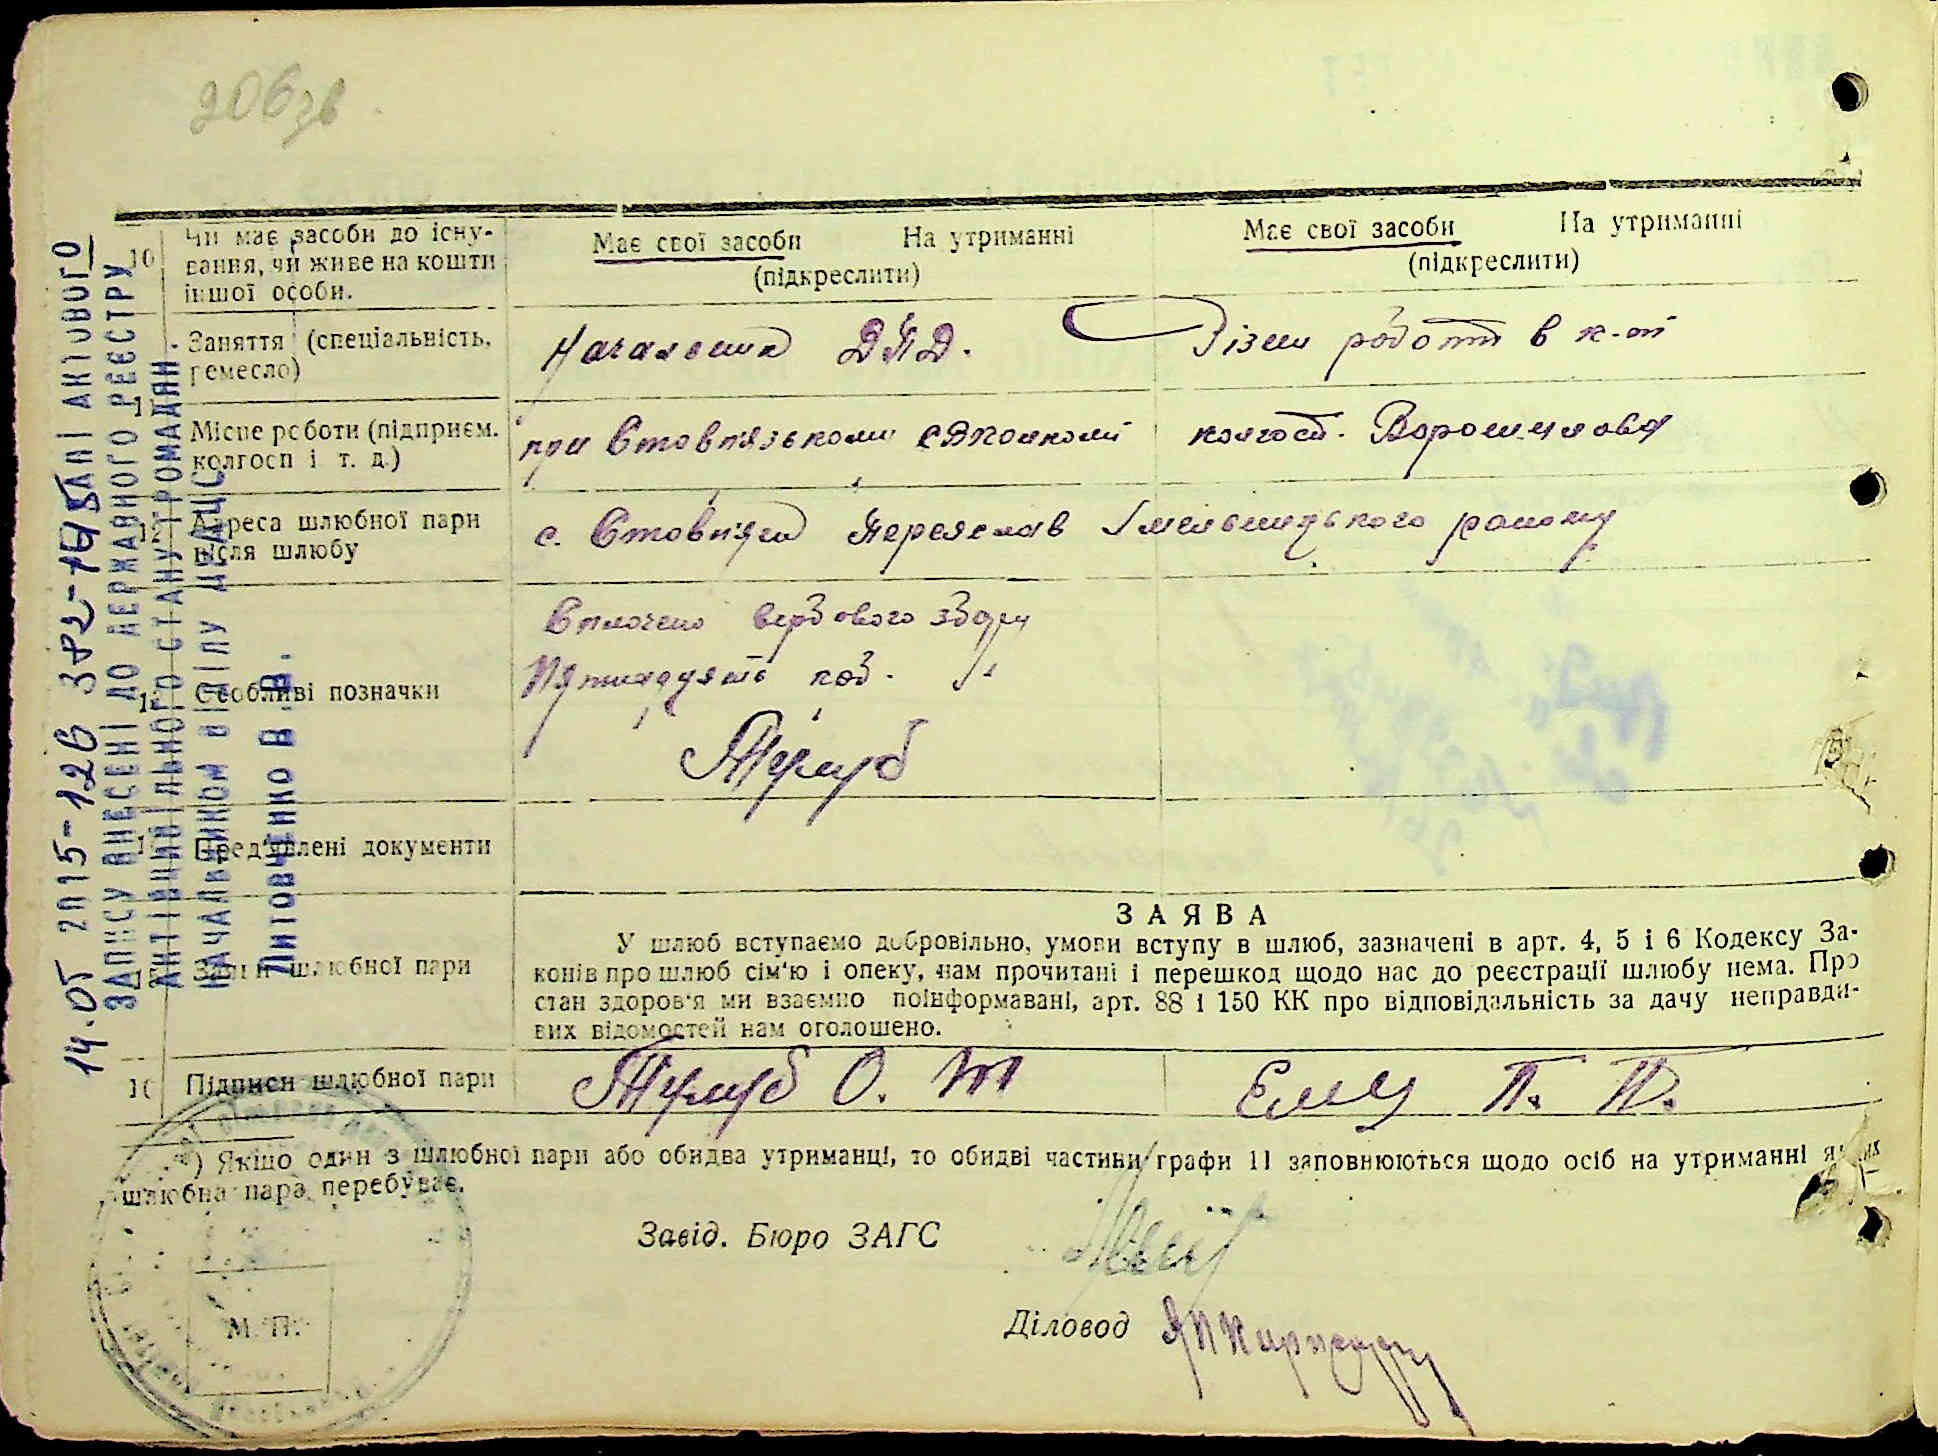 206зв
10 Чи має засоби до існу-
вання, чи живе на кошти
іншої особи.
Має свої засоби На утриманні
(підкреслити)
Має свої засоби На утриманні
(підкреслити)
Заняття (спеціальність,
ремесло)
Началник ДПД.
Різни роботи в к-ті
Місце роботи (підприєм.
колгосп і т. д.)
при Стовпязькому
колгосп. Ворошилова
12 Адреса шлюбної пари
після шлюбу
с. Стовпяги Переяслав Хмельницького району
Особливі позначки
Сплочено гербового збору
Пятнадцять коб.
Тулуб
Пред'явлені документи
Заяви шлюбної пари
ЗАЯВА
У шлюб вступаємо добровільно, умови вступу в шлюб, зазначені в арт. 4, 5 і 6 Кодексу За-
конів про шлюб сім'ю і опеку, нам прочитані і перешкод щодо нас до реєстрації шлюбу нема. Про
стан здоров'я ми взаємно поінформавані, арт. 88 і 150 КК про відповідальність за дачу неправди-
вих відомостей нам оголошено.
16 Підписи шлюбної пари
Тулуб О. Т
Емец П. П.
*) Якщо один з шлюбної пари або обидва утриманці, то обидві частини графи 11 заповнюються щодо осіб на утриманні яких
шлюбна пара перебуває.
Завід. Бюро ЗАГС
Діловод
М. П.
14.05 2015-12в
ЗАПИСУ ВНЕСЕНІ ДО ДЕРЖАВНОГО РЕЄСТРУ
АКТІВ ЦИВІЛЬНОГО СТАНУ ГРОМАДЯН.
НАЧАЛЬНИКОМ ВІДІЛУ ДРАЦС
Литовченко В.В.